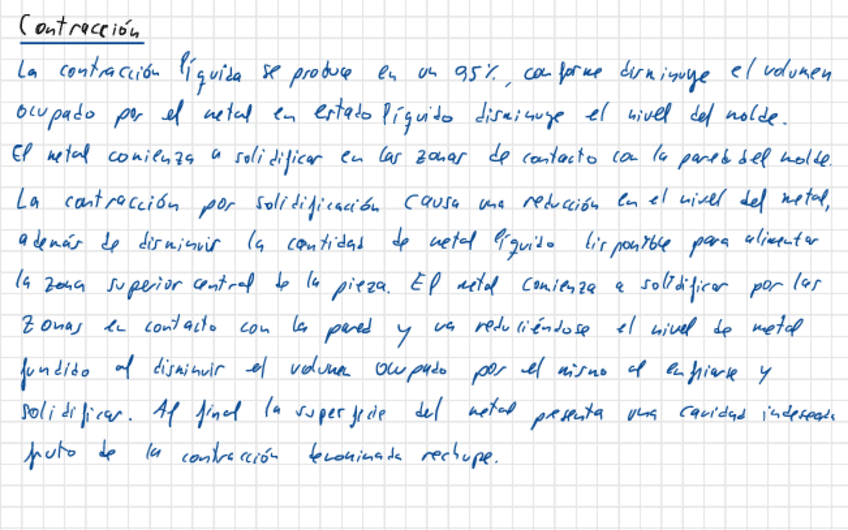 Contracción
La contracción líquida se produce en un 95%, conforme disminuye el volumen
ocupado por el metal en estado líquido disminuye el nivel del molde.
El metal comienza a solidificar en las zonas de contacto con la pared del molde.
La contracción por solidificación causa una reducción en el nivel del metal,
además de disminuir la cantidad de metal líquido disponible para alimentar
la zona superior central de la pieza. El metal comienza a solidificar por las
zonas en contacto con la pared y va reduciéndose el nivel de metal
fundido al disminuir el volumen ocupado por el mismo al enfriarse y
solidificar. Al final la superficie del metal presenta una cavidad indeseada
fruto de la contracción denominada rechupe.